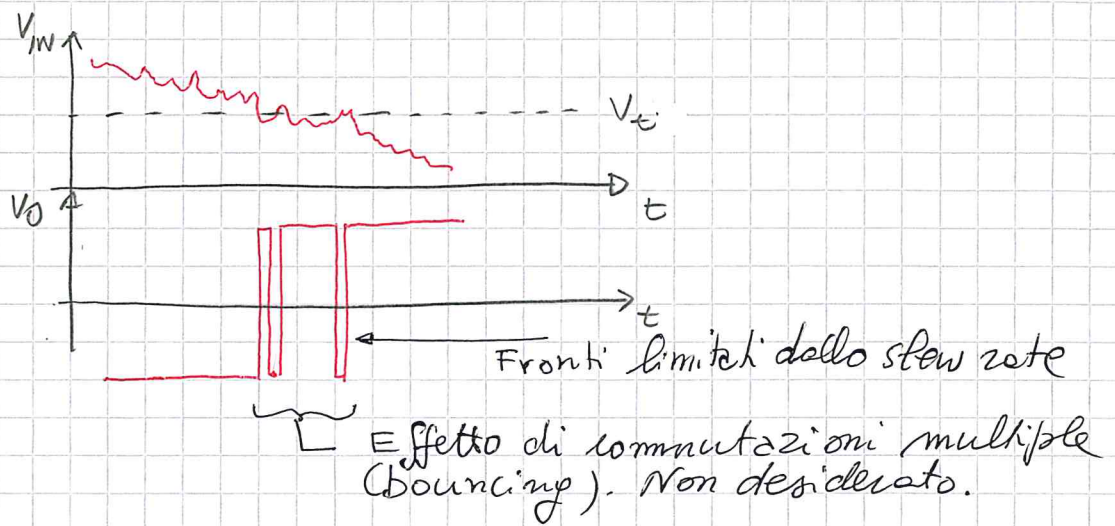 V_IN
V_t
t
V_O
t
Fronti limitati dallo slew rate
Effetto di commutazioni multiple
(bouncing). Non desiderato.